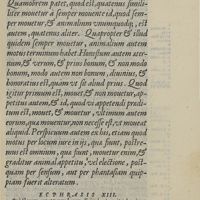 Quamobrem patet, quod est, quatenus simili-
ter mouetur a semper mouente id, quod sem-
per mouetur, & animalium vnumquodq;, est
autem, quatenus aliter. Quapropter & illud
quidem semper mouetur, animalium autem
motus terminum habet. Honestum autem æter-
num, & verum, & primo bonum, & non modo
bonum, modo autem non bonum, diuinius, &
honoratius est, quam vt sit aliud prius. Quod
igitur primum est, mouet, & non mouetur, ap-
petitus autem, & id, quod vi appetendi prædi-
tum est, mouet, & mouetur, vltimum autem
eorum, quæ mouentur, non necesse est, vt moueat
aliquid. Perspicuum autem ex his, etiam quod
motus per locum iure in ijs, quæ fiunt, postre-
mus est omnium, quæ fiunt, mouetur enim, &
graditur animal appetitu, vel electione, post-
quam per sensum, aut per phantasiam quip-
piam fuerit alteratum.
ECPHRASIS XIII.